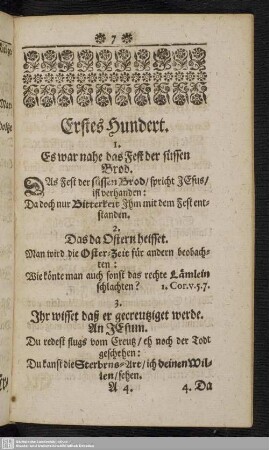 7
Erstes Hundert.
1.
Es war nahe das Fest der süssen
Brod.
DAs Fest der süssen Brod/ spricht JEsus/
ist verhanden:
Da doch nur Bitterkeit Jhm mit dem Fest ent-
standen.
2.
Das da Ostern heisset.
Man wird die Oster-Zeit für andern beobach-
ten:
Wie könte man auch sonst das rechte Lämlein
schlachten? 1. Cor. v. 5. 7.
3.
Jhr wisset daß er gecreutziget werde.
An JEsum.
Du redest flugs vom Creutz/ eh noch der Todt
geschehen:
Du kanst die Sterbens-Art/ ich deinen Wil-
len/ sehen.
A 4 4. Da